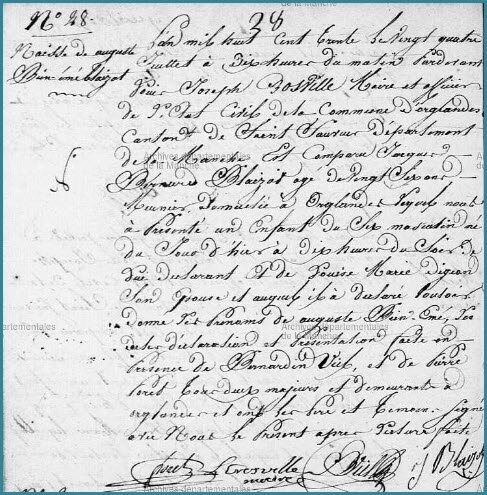 N° 28
28
Naisse de auguste
Bien aimé blaizot
L'an mil huit Cent trente le vingt quatre
juillet à dix heures du matin Pardevant
Nous Joseph Maire et officier
de L'Etat Civil de la Commune D'orglandes
Canton de Saint Sauveur département
de la Manche Est Comparu Jacques
Blaizot age de vingt Sept ans
Meunier Domicilié à Orglandes Lequel nous
à Présenté un Enfant du Sex masculin né
du Jour d'hier à dix heures du Soir de
Lui déclarant Et de Louise Marie digeon
Son Epouse et auquel il à déclaré vouloir
donné les Prénoms de auguste Bien Emé, Les
dites déclaration et Présentation faite en
Présence de Bernardin et de Pierre
tous deux majeurs et demeurants à
orglandes et ont les Pere et Temoin Signé
avec Nous le Present apres Lecture faite
J Blaizot
Archives départementales
de la Manche